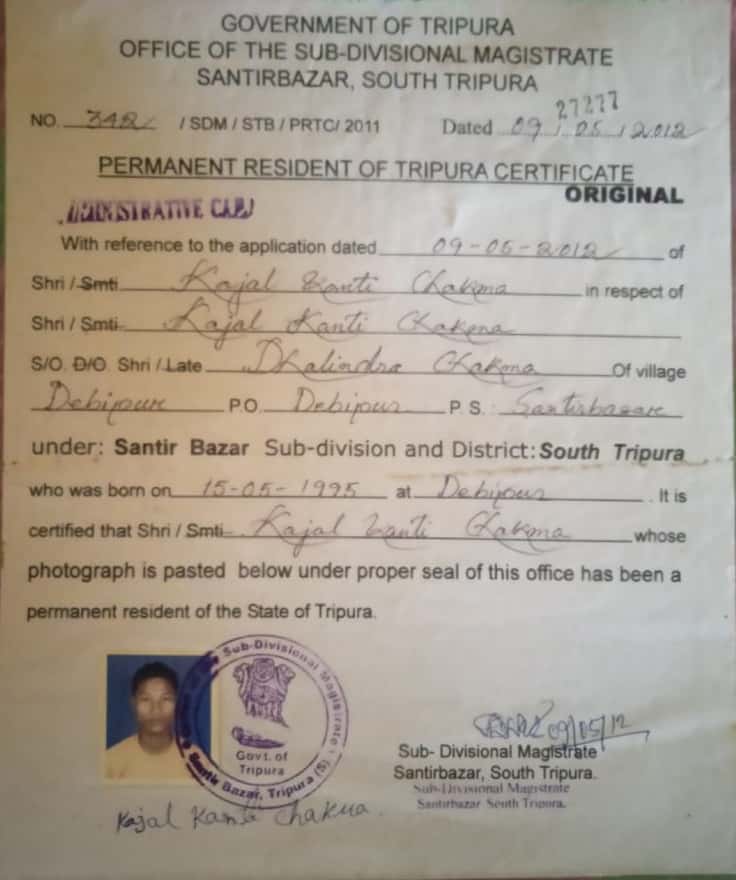 GOVERNMENT OF TRIPURA
OFFICE OF THE SUB-DIVISIONAL MAGISTRATE
SANTIRBAZAR, SOUTH TRIPURA
27277
NO. 342/ / SDM / STB / PRTC/ 2011 Dated 09/05/2012
PERMANENT RESIDENT OF TRIPURA CERTIFICATE
ORIGINAL
With reference to the application dated 09-05-2012 of
Shri / Smti Kajal Kanti Chakma in respect of
Shri / Smti Kajal Kanti Chakma
S/O. D/O. Shri / Late Dhalindra Chakma Of village
Debipur P.O. Debipur P.S.: Santirbazar
under: Santir Bazar Sub-division and District: South Tripura
who was born on 15-05-1995 at Debipur. It is
certified that Shri / Smti Kajal Kanti Chakma whose
photograph is pasted below under proper seal of this office has been a
permanent resident of the State of Tripura.
Sub-Divisional Magistrate
Govt. of
Tripura
Santir Bazar, Tripura (S)
09/05/12
Sub- Divisional Magistrate
Santirbazar, South Tripura.
Sub-Divisional Magistrate
Santirbazar South Tripura.
Kajal Kanti Chakma